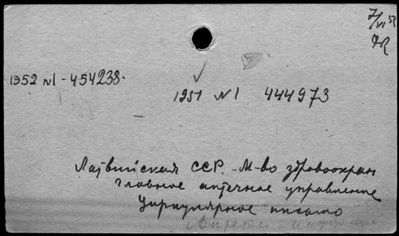 7/VI 51
1952 №1 - 454238.
1951 №1 444973
Латвийская ССР. М-во здравоохран
Главное аптечное управление
Циркулярное письмо